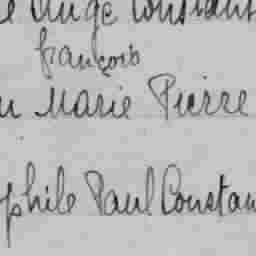 Ange Constant
françois
Marie Pierre
phile Paul Constan